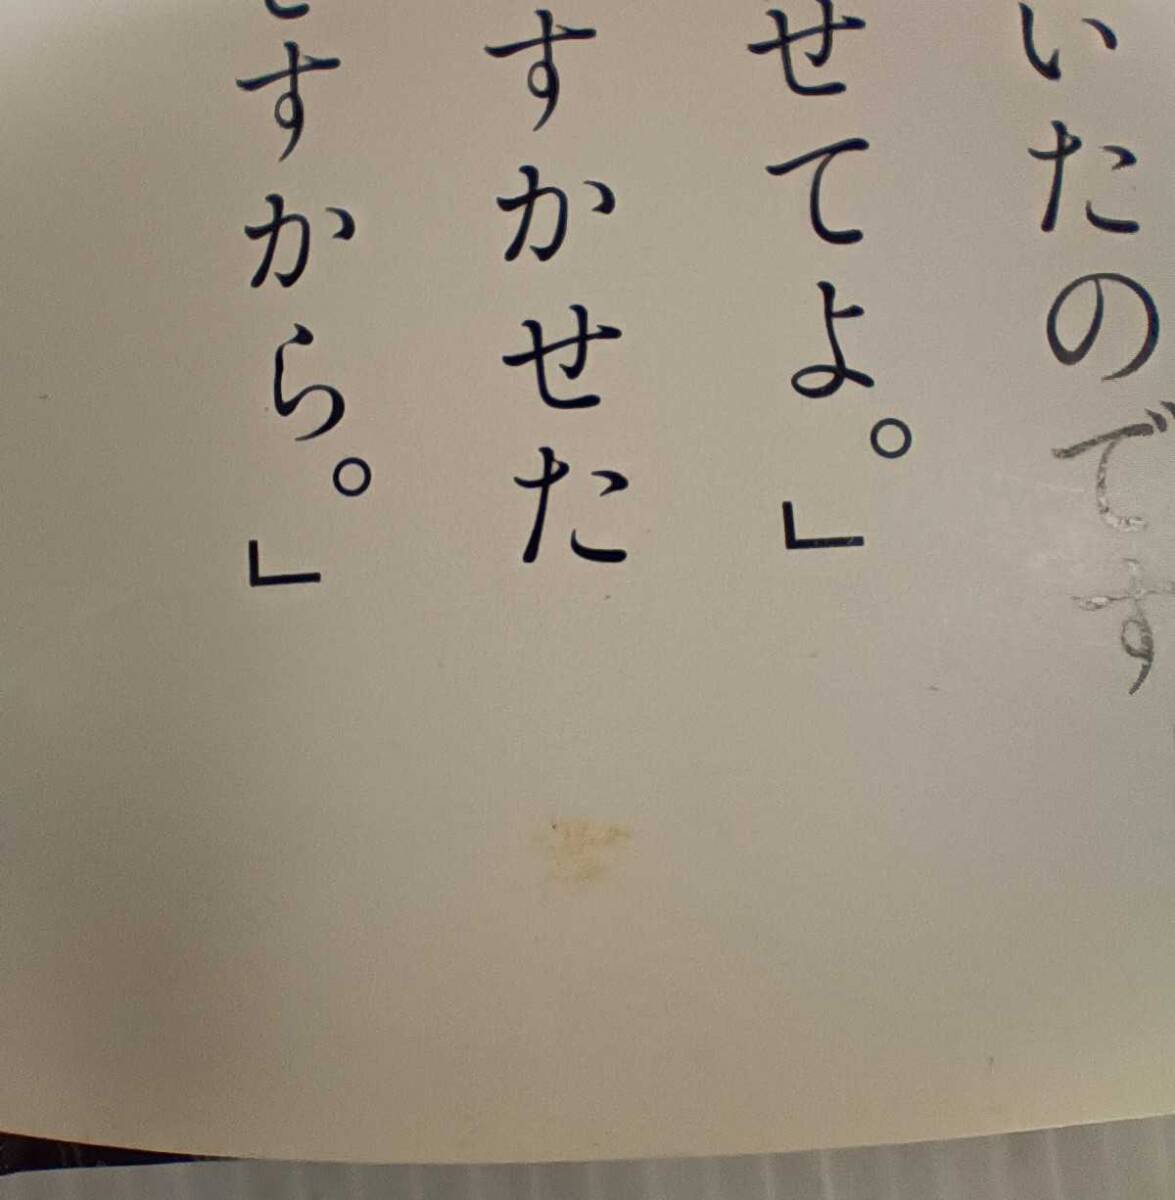 いたのです
せてよ。」
すかせた
すから。」